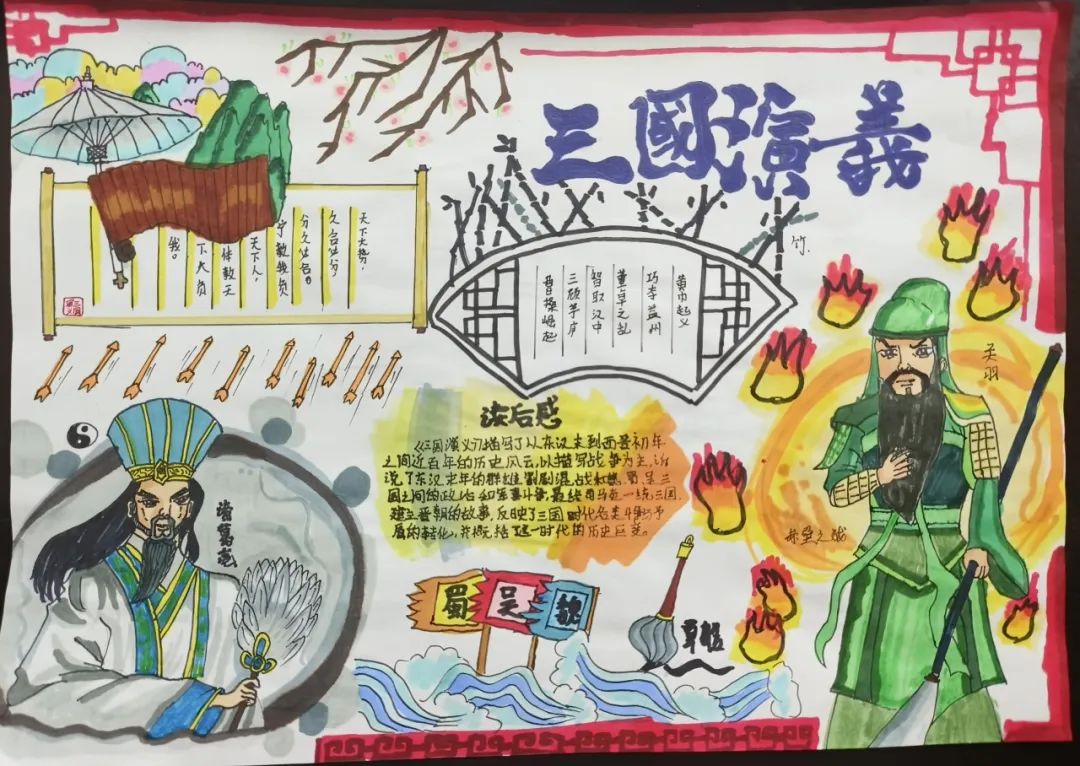 三國演義
天下大势，
久合必分
分久必合。
宁教我负
天下人，
休教天
下人负
我。
竹
黄巾起义
巧夺益州
董卓之乱
智取汉中
三顾茅庐
曹操崛起
关羽
读后感
《三国演义》描写了从东汉末到西晋初年
之间近百年的历史风云，以描写战争为主，诉
说了东汉末年的群雄割剧混战和魏、蜀、吴三
国之间的政治和军事斗争，最终司马炎一统三国，
建立晋朝的故事，反映了三国时代各类斗争与矛
盾的转化，并概括这一时代的历史巨变。
诸葛亮
蜀
吴
魏
草船